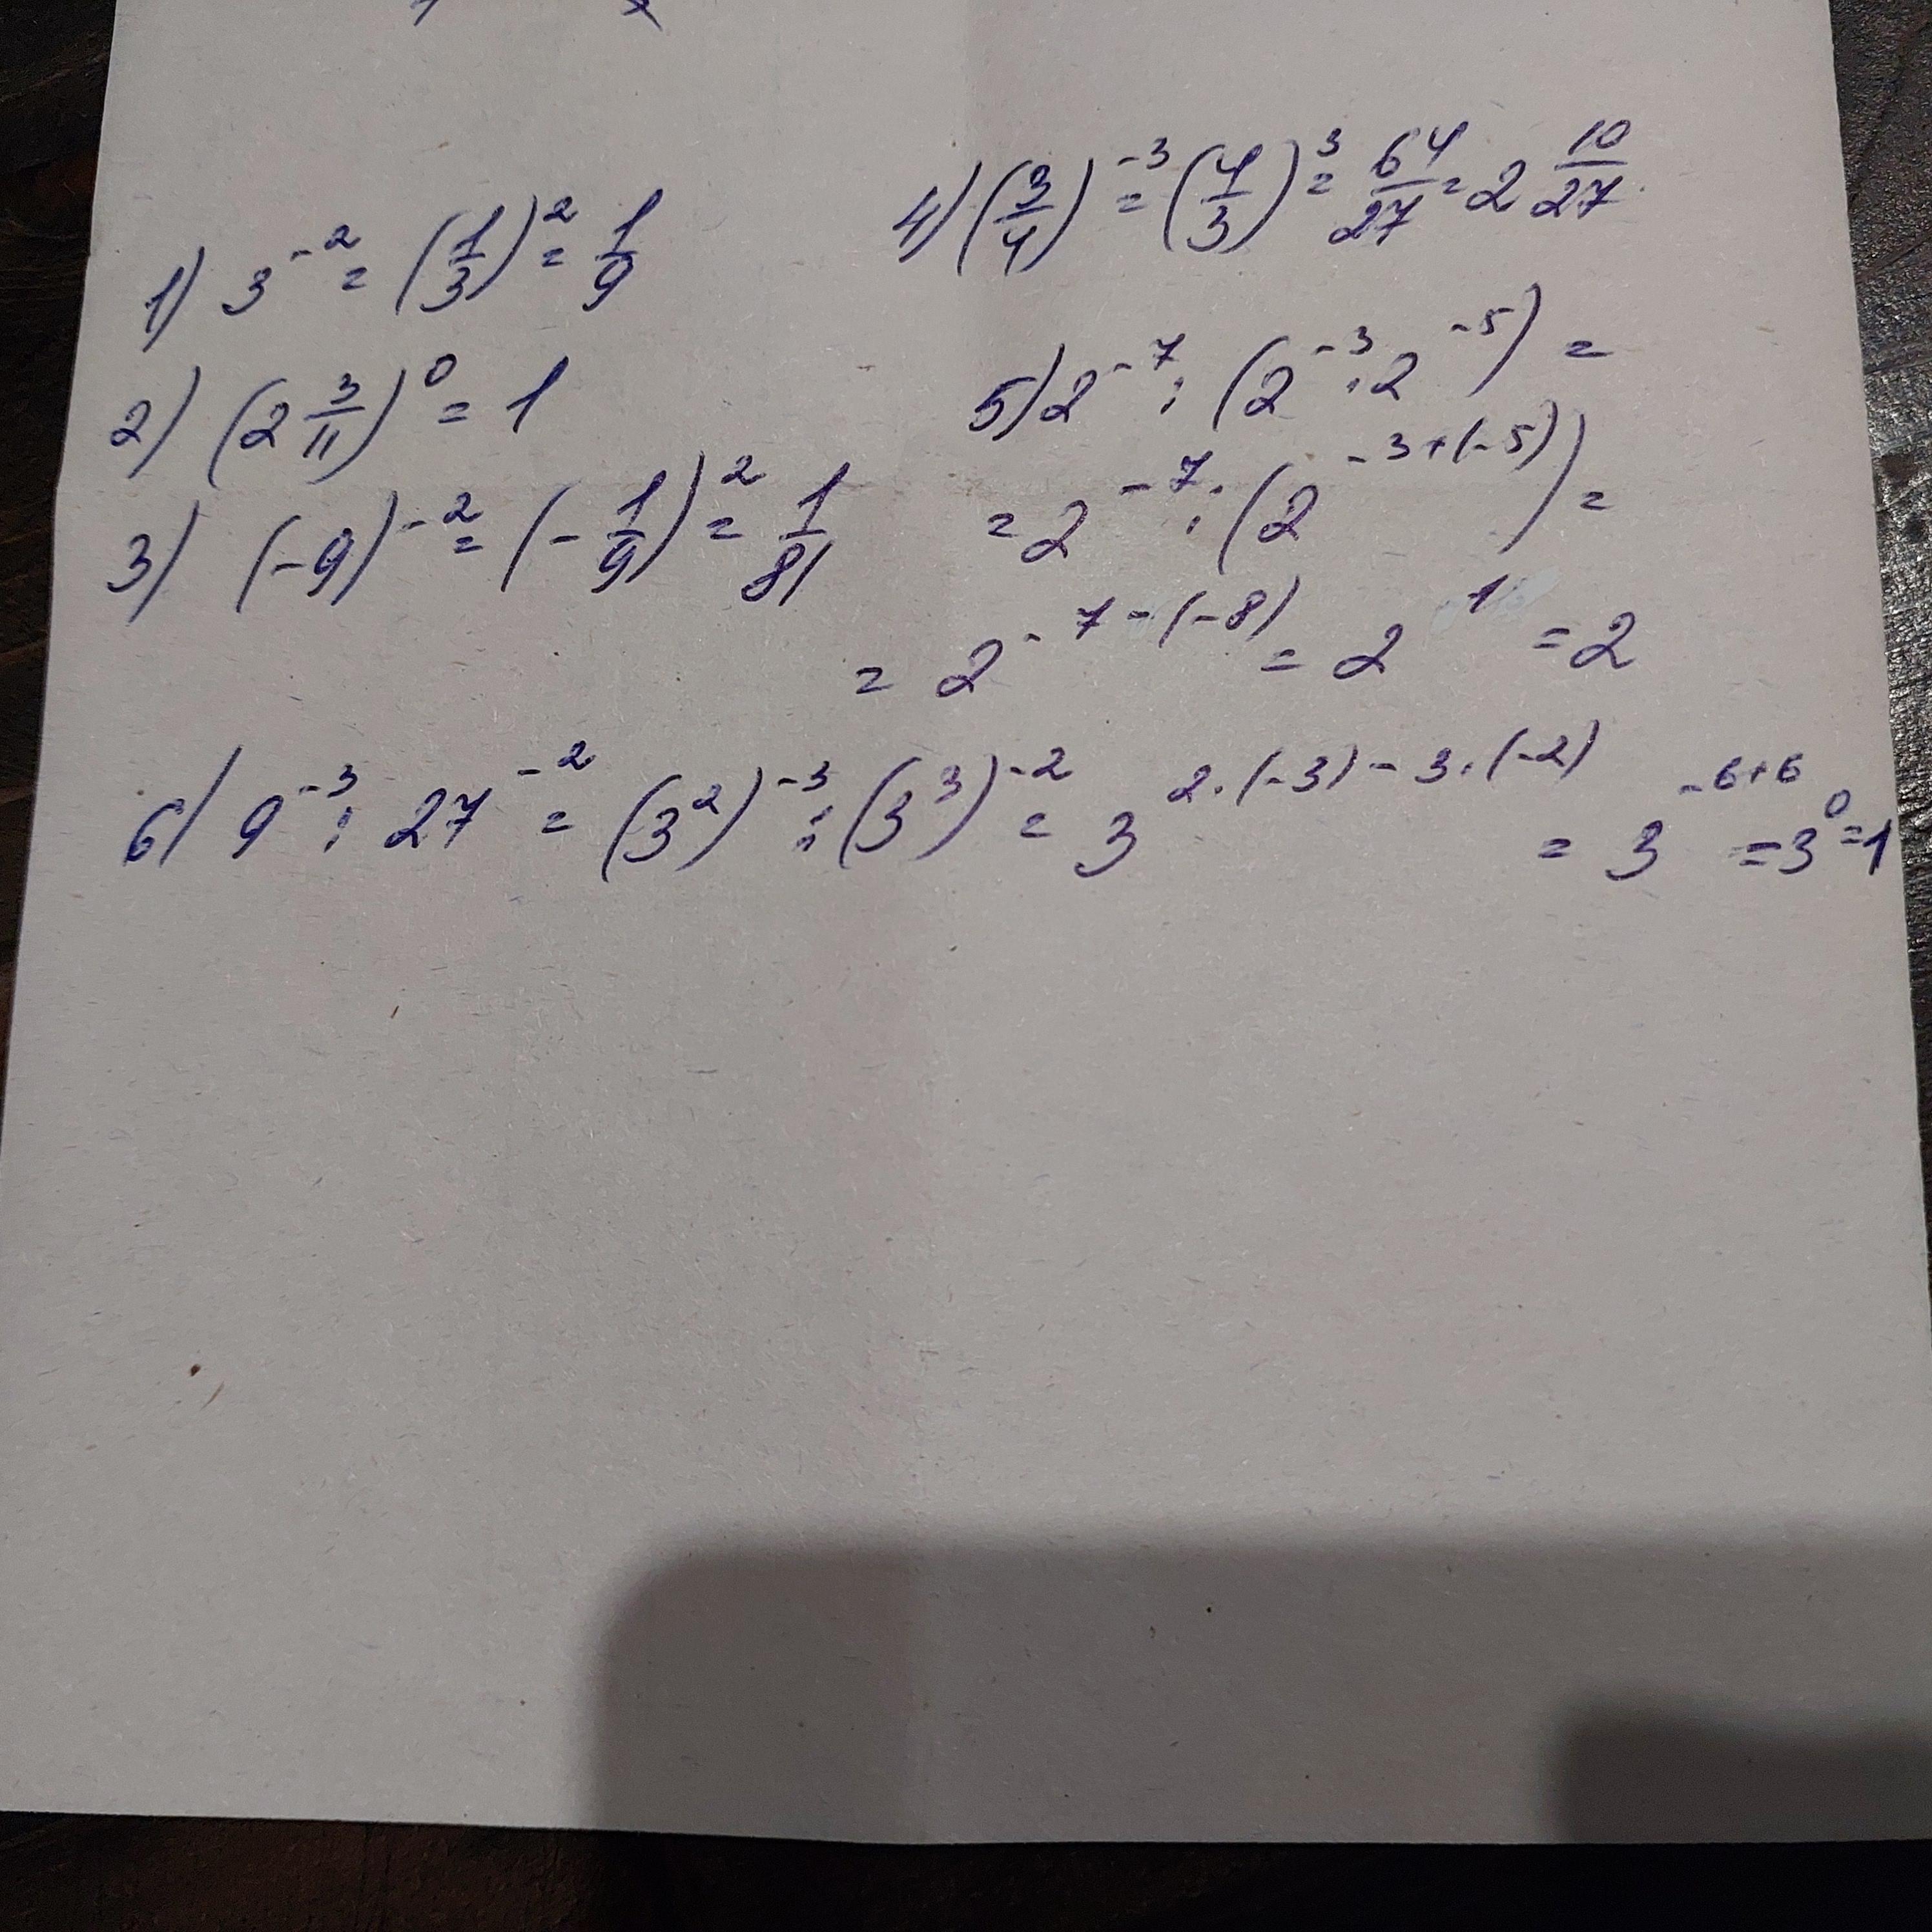 1) 3^-2 = (1/3)^2 = 1/9
2) (2 3/11)^0 = 1
3) (-9)^-2 = (-1/9)^2 = 1/81
4) (3/4)^-3 = (4/3)^3 = 64/27 = 2 10/27
5) 2^-7 : (2^-3 · 2^-5) =
= 2^-7 : (2^-3+(-5)) =
= 2^-7-(-8) = 2^1 = 2
6) 9^-3 : 27^-2 = (3^2)^-3 : (3^3)^-2 = 3^2·(-3)-3·(-2) = 3^-6+6 = 3^0 = 1